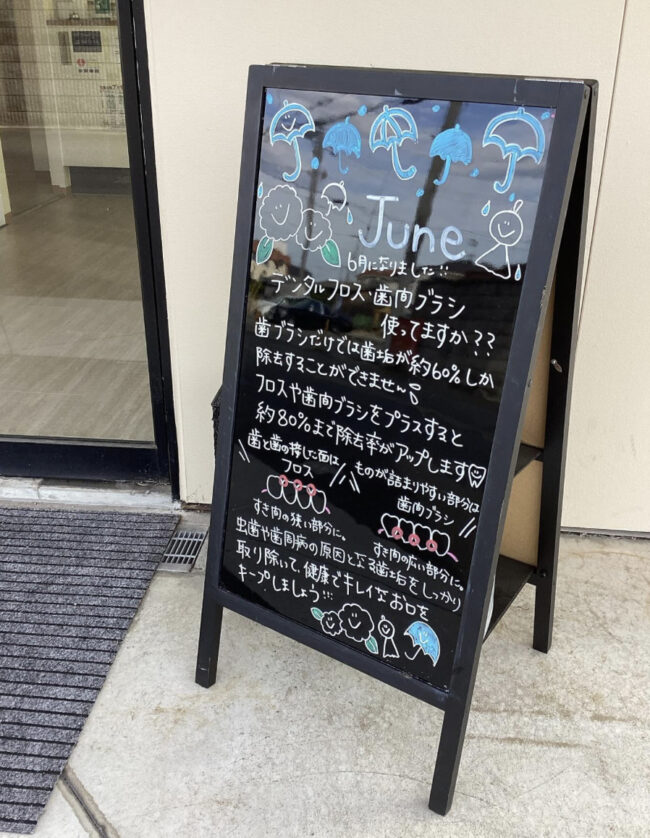 June
6月になりました!!
デンタルフロス・歯間ブラシ
使ってますか??
歯ブラシだけでは歯垢が約60%しか
除去することができません
フロスや歯間ブラシをプラスすると
約80%まで除去率がアップします
歯と歯の接した面は
フロス
すき間の狭い部分に。
ものが詰まりやすい部分は
歯間ブラシ
すき間の広い部分に。
虫歯や歯周病の原因となる歯垢をしっかり
取り除いて、健康でキレイなお口を
キープしましょう!!!